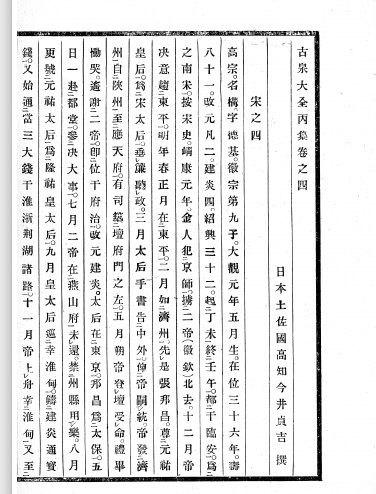 古泉大全丙集卷之四
日本土佐國高知今井貞吉 撰
宋之四
高宗。名構字德基。徽宗第九子。大觀元年五月生。在位三十六年。壽
八十一。改元凡二。建炎四。紹興三十二。起丁未終壬午。都于臨安。爲
之南宋。按宋史。靖康元年。金人犯京師。擄二帝(徽欽)北去。十二月帝
决意趨東平。明年春正月在東平。二月如濟州。先是張邦昌。尊元祐
皇后。爲宋太后。垂簾聽政。三月太后手書告中外。俾帝嗣統。帝發濟
州。自陝州至應天府。有司築壇府門之左。五月朔帝登壇受命。禮畢
慟哭。遙謝二帝。卽位于府治。改元建炎。太后在東京。邦昌爲太保。五
日一赴都堂。參决大事。七月二帝在燕山府未還。禁州縣用樂。八月
更號元祐太后。爲隆祐皇太后。九月皇太后巡幸淮甸。鑄建炎通寳
錢。又始通當三大錢于淮浙荆湖諸路。十一月帝上舟幸淮甸又至